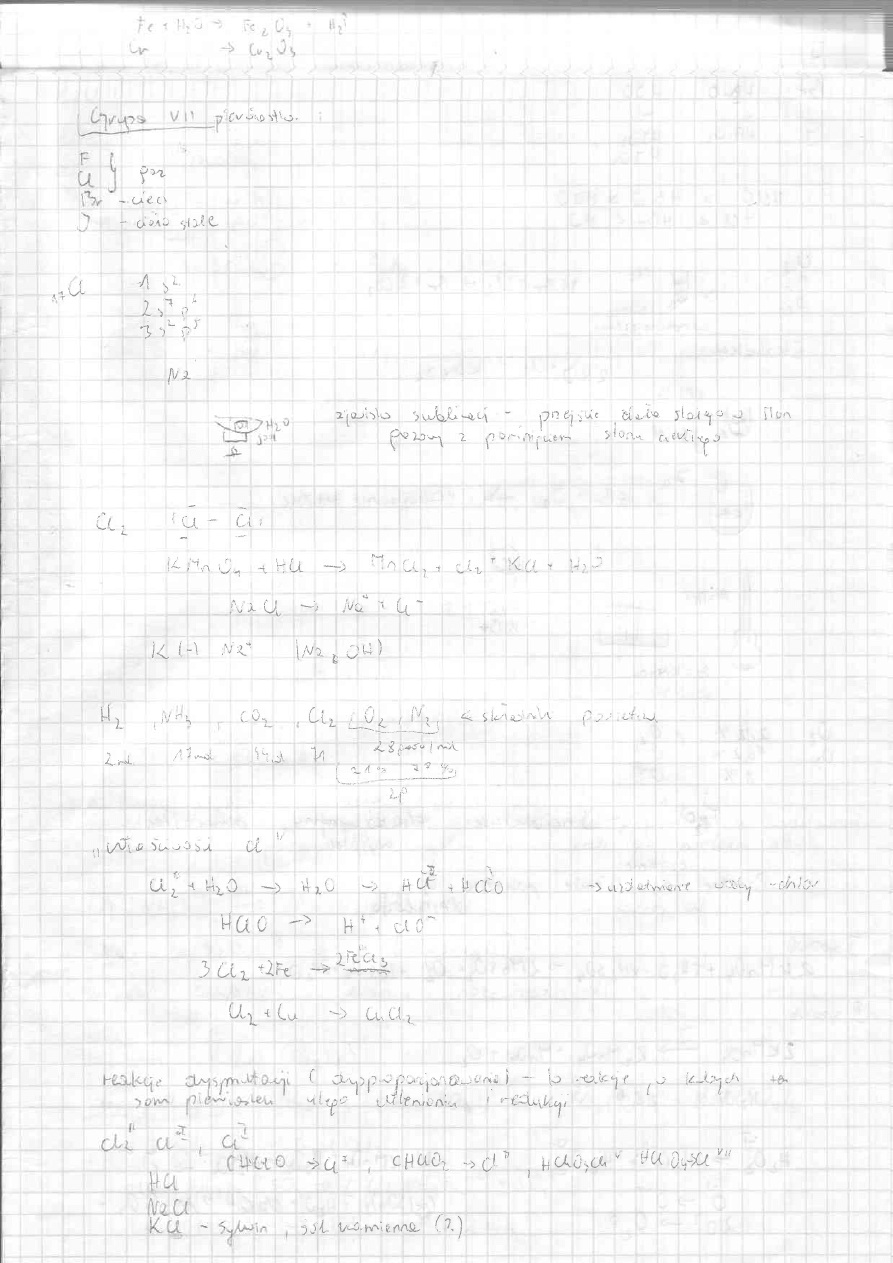 Fe + H₂O → Fe₂O₃ + H₂↑
Cr → Cr₂O₃
Grupa VII pierwiastków :
F
Cl } gaz
Br - ciecz
J - ciało stałe
₁₇Cl 1 s²
2 s² p⁶
3 s² p⁵
Na
H₂O
zjawisko sublimacji - przejście ciała stałego w stan
gazowy z pominięciem stanu ciekłego
Cl₂ |Cl - Cl|
KMnO₄ + HCl → MnCl₂ + Cl₂ + KCl + H₂O
NaCl → Na⁺ + Cl⁻
K (-) Na⁺ (Na, OH)
H₂ , NH₃ , CO₂ , Cl₂ , O₂ , N₂ < składniki powietrza
71 28
21% 78%
"właściwości Cl"
Cl₂ + H₂O → H₂O → HCl + HClO → uzdatnianie wody - chlor
HClO → H⁺ + ClO⁻
3Cl₂ + 2Fe → 2FeCl₃
Cl₂ + Cu → CuCl₂
reakcje dysmutacji ( dysproporcjonowania) - to reakcje, w których ten
sam pierwiastek ulega utlenieniu i redukcji
HCl
NaCl
KCl - sylwin , sól kamienna (?)